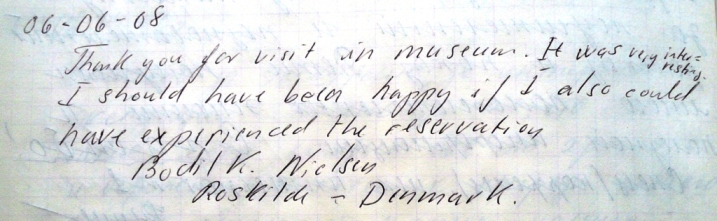 06-06-08
Thank you for visit in museum. It was very inter=
resting.
I should have been happy if I also could
have experienced the reservation
Bodil K. Nielsen
Roskilde - Denmark.